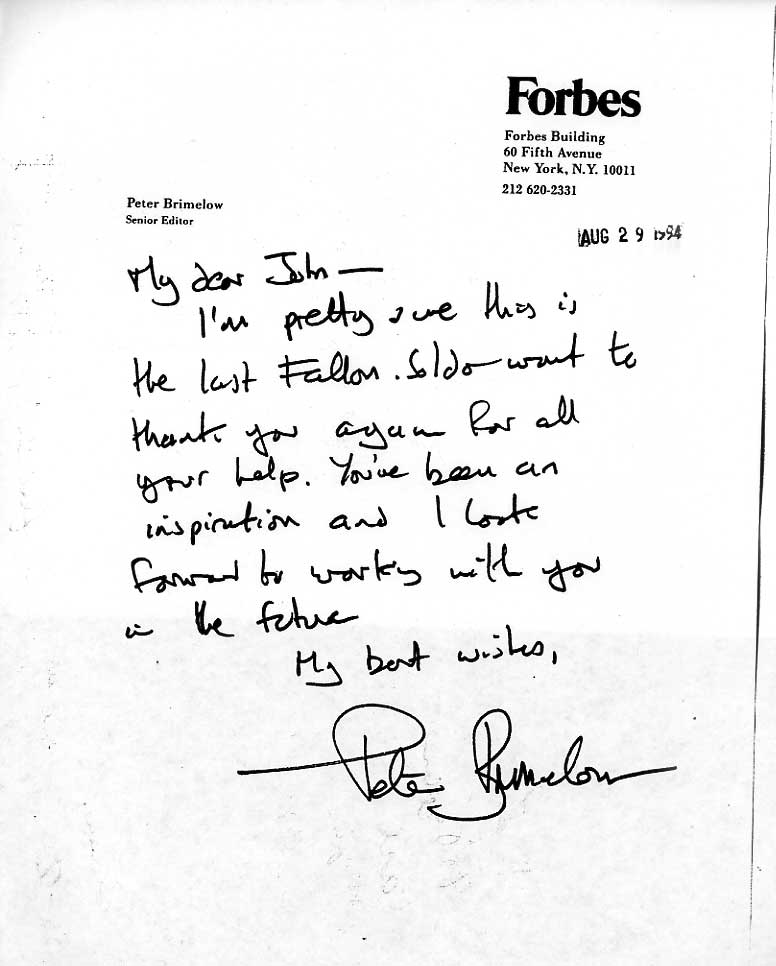 Forbes
Forbes Building
60 Fifth Avenue
New York, N.Y. 10011
212 620-2331
Peter Brimelow
Senior Editor
AUG 29 1994
My dear John —
I'm pretty sure this is
the last Fallon. So I do want to
thank you again for all
your help. You've been an
inspiration and I look
forward to working with you
in the future
My best wishes,
Peter Brimelow